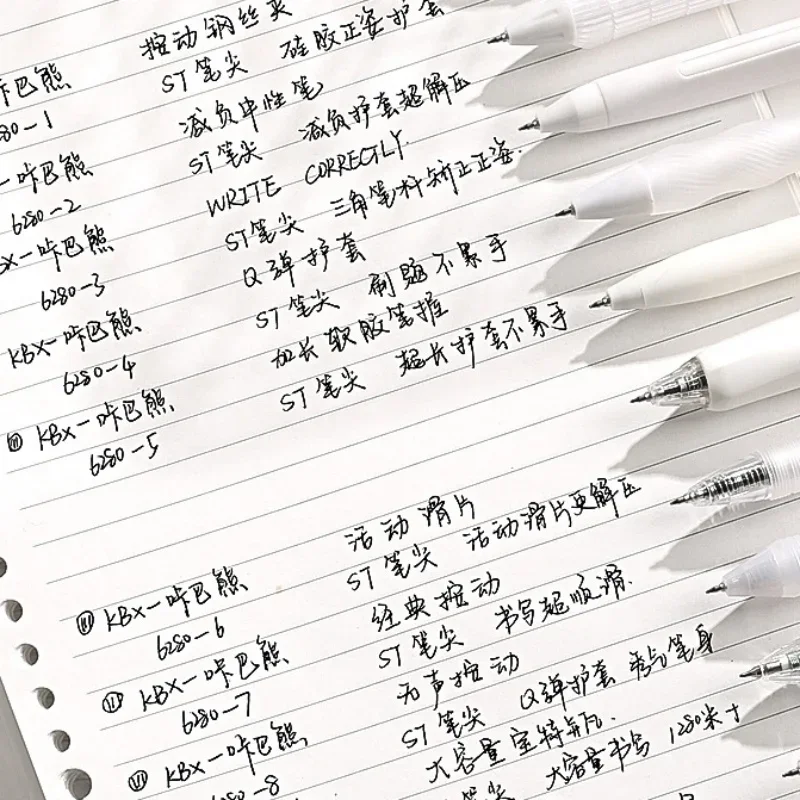 按动钢丝夹
咔巴熊 ST笔尖 硅胶正姿护套
80-1 减负中性笔
-咔巴熊 ST笔尖 减负护套超解压
6280-2 WRITE CORRECTLY.
X-咔巴熊 ST笔尖 三角笔杆矫正正姿.
6280-3 Q弹护套
KBX-咔巴熊 ST笔尖 刷题不累手
6280-4 加长软胶笔握
KBX-咔巴熊 ST笔尖 超长护套不累手
6280-5
活动滑片
KBX-咔巴熊 ST笔尖 活动滑片更解压
6280-6 经典按动
KBX-咔巴熊 ST笔尖 书写超顺滑.
6280-7 无声按动
KBX-咔巴熊 ST笔尖 Q弹护套 笔身
6280-8 大容量宝特瓶.
ST笔尖 大容量书写 1280米+